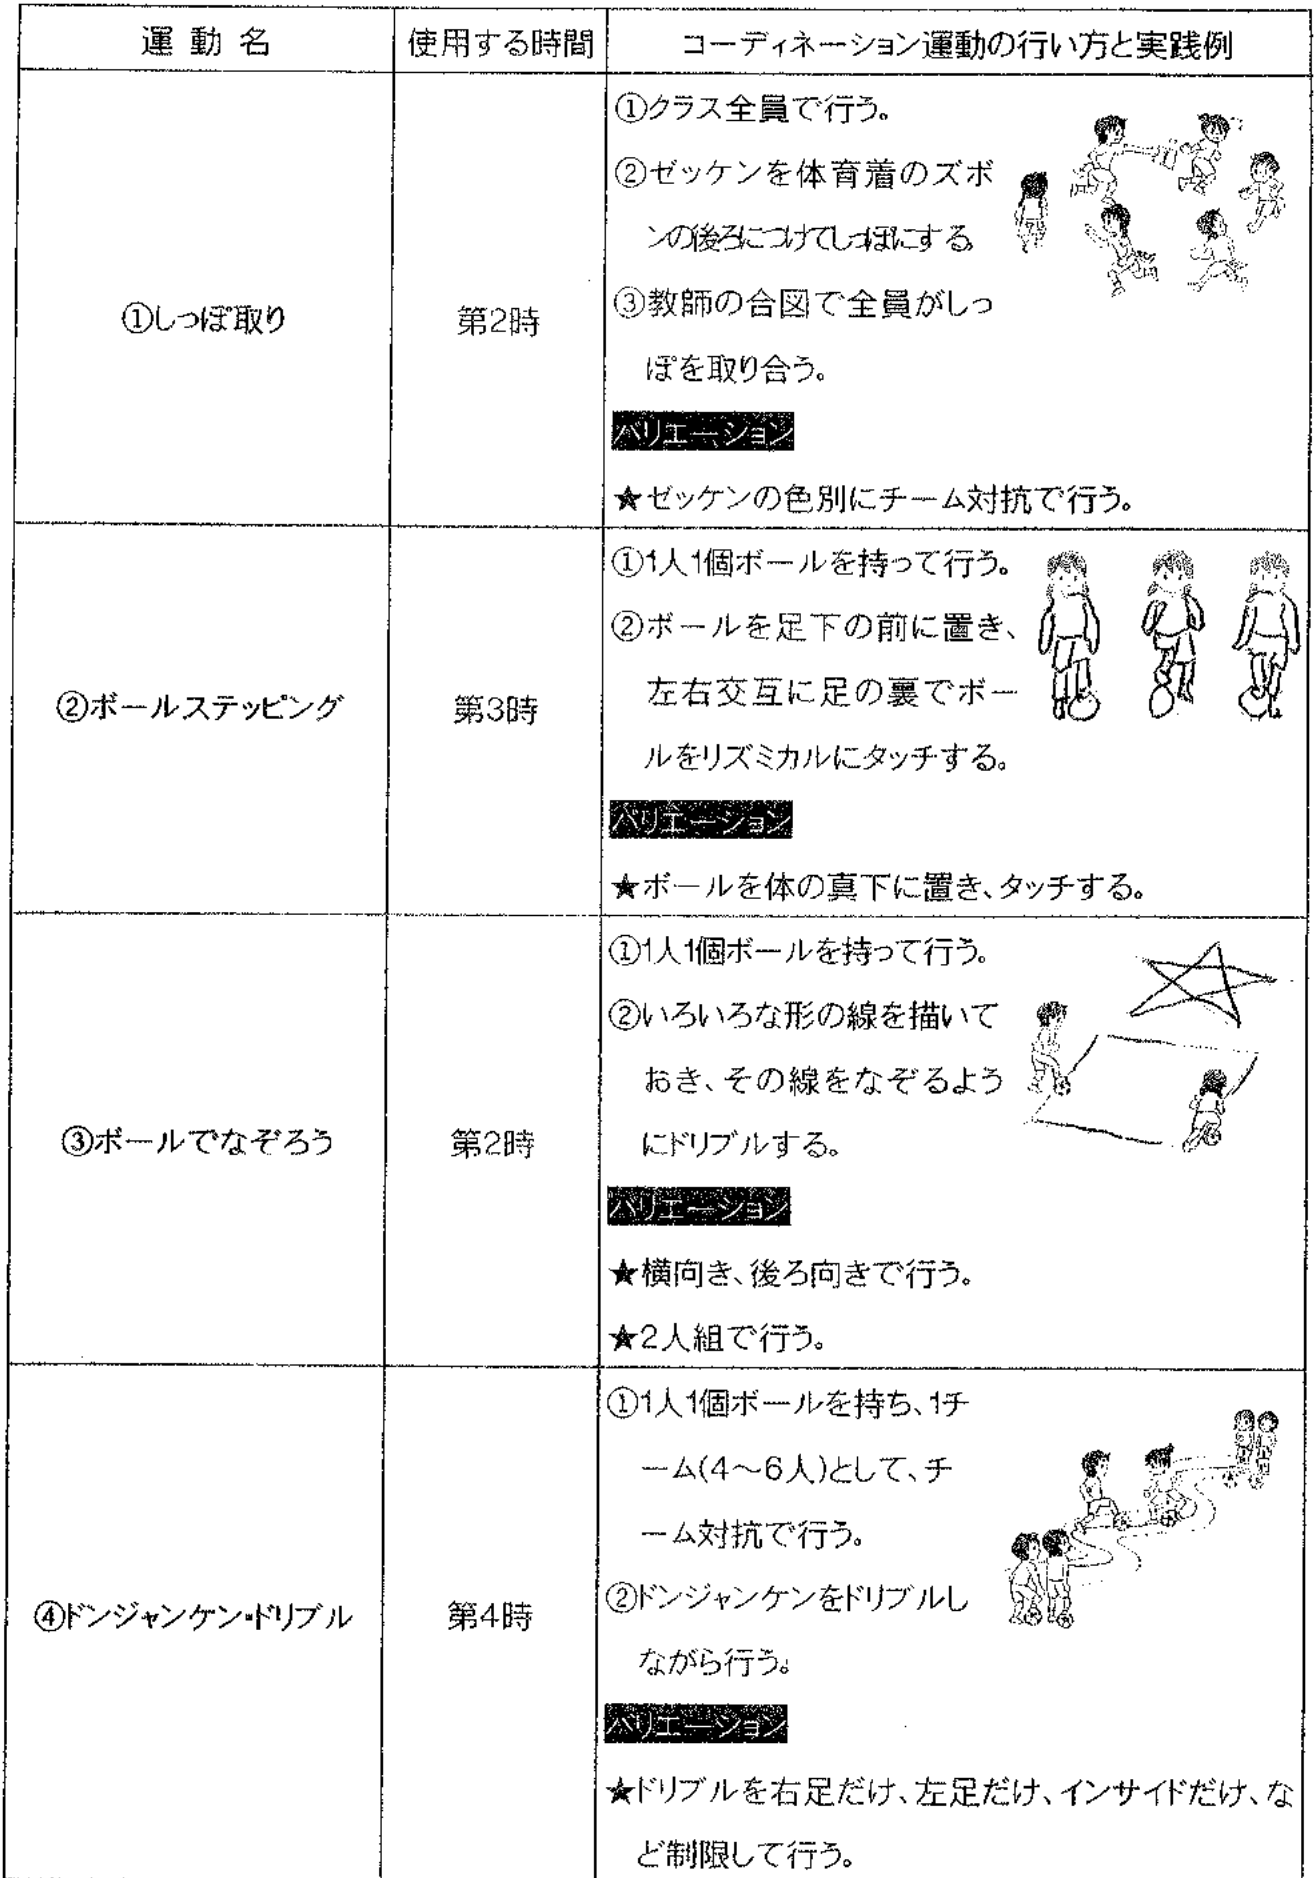 運動名 使用する時間 コーディネーション運動の行い方と実践例
①しっぽ取り
第2時
①クラス全員で行う。
②ゼッケンを体育着のズボ
ンの後ろにつけてしっぽにする。
③教師の合図で全員がしっ
ぽを取り合う。
バリエーション
★ゼッケンの色別にチーム対抗で行う。
②ボールステッピング
第3時
①1人1個ボールを持って行う。
②ボールを足下の前に置き、
左右交互に足の裏でボー
ルをリズミカルにタッチする。
バリエーション
★ボールを体の真下に置き、タッチする。
③ボールでなぞろう
第2時
①1人1個ボールを持って行う。
②いろいろな形の線を描いて
おき、その線をなぞるよう
にドリブルする。
バリエーション
★横向き、後ろ向きで行う。
★2人組で行う。
④ドンジャンケン・ドリブル
第4時
①1人1個ボールを持ち、1チ
ーム(4～6人)として、チ
ーム対抗で行う。
②ドンジャンケンをドリブルし
ながら行う。
バリエーション
★ドリブルを右足だけ、左足だけ、インサイドだけ、な
ど制限して行う。